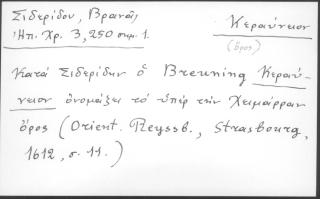 Σιδερίδου, Βρανᾶ,
Ἠπ. Χρ. 3, 250 σημ. 1.
Κεραύνειον
(ὄρος)
Κατά Σιδερίδην ὁ Breuning Κεραύ-
νειον ὀνομάζει τό ὑπέρ τήν Χειμάρραν
ὄρος (Orient. Reyssb., Strasbourg,
1612, σ. 11.)